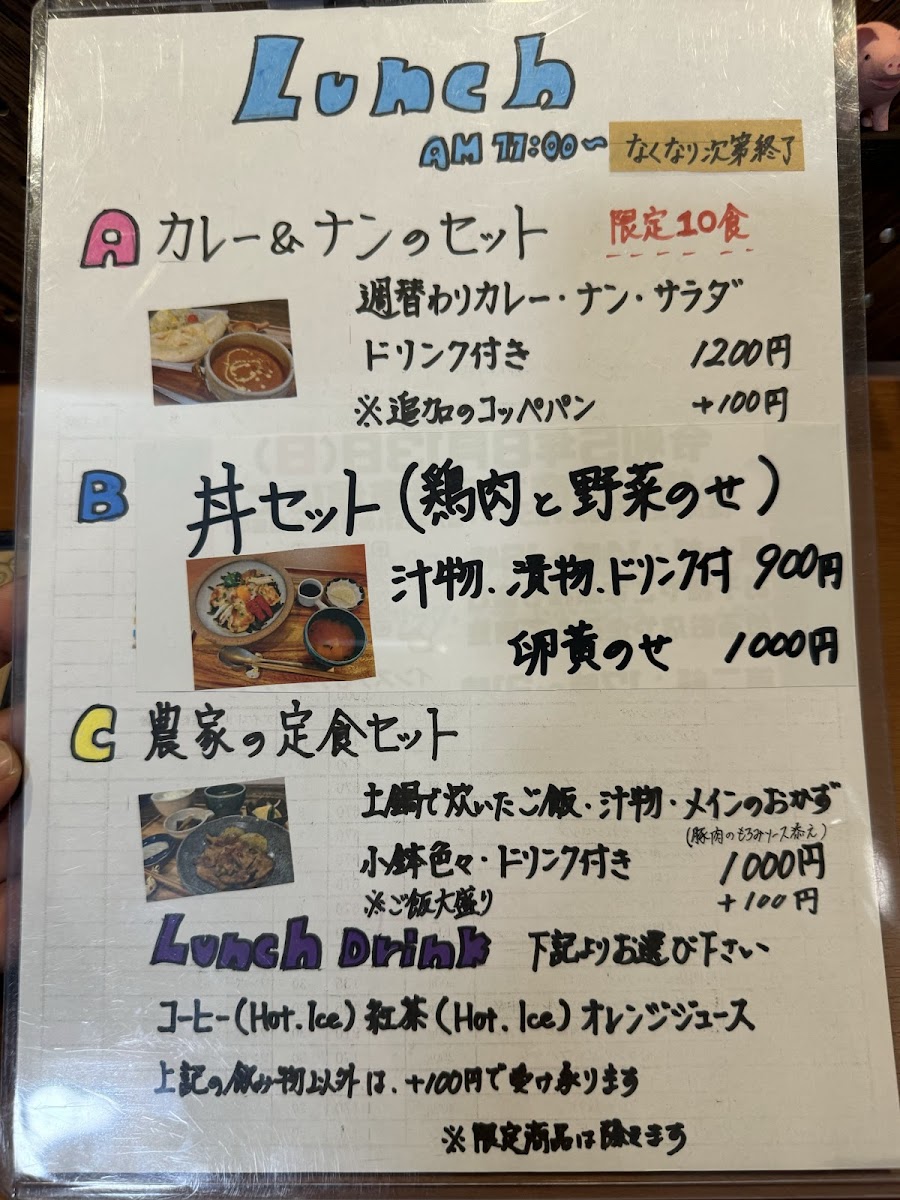 Lunch
AM 11:00〜 なくなり次第終了
A カレー&ナンのセット 限定10食
週替わりカレー・ナン・サラダ
ドリンク付き 1200円
※追加のコッペパン +100円
B 丼セット(鶏肉と野菜のせ)
汁物、漬物、ドリンク付 900円
卵黄のせ 1000円
C 農家の定食セット
土鍋で炊いたご飯・汁物・メインのおかず
(豚肉のもろみソース添え)
小鉢色々・ドリンク付き 1000円
※ご飯大盛り +100円
Lunch Drink 下記よりお選び下さい
コーヒー(Hot.Ice) 紅茶(Hot.Ice) オレンジジュース
上記の飲み物以外は、+100円で受け承ります
※限定商品は除きます